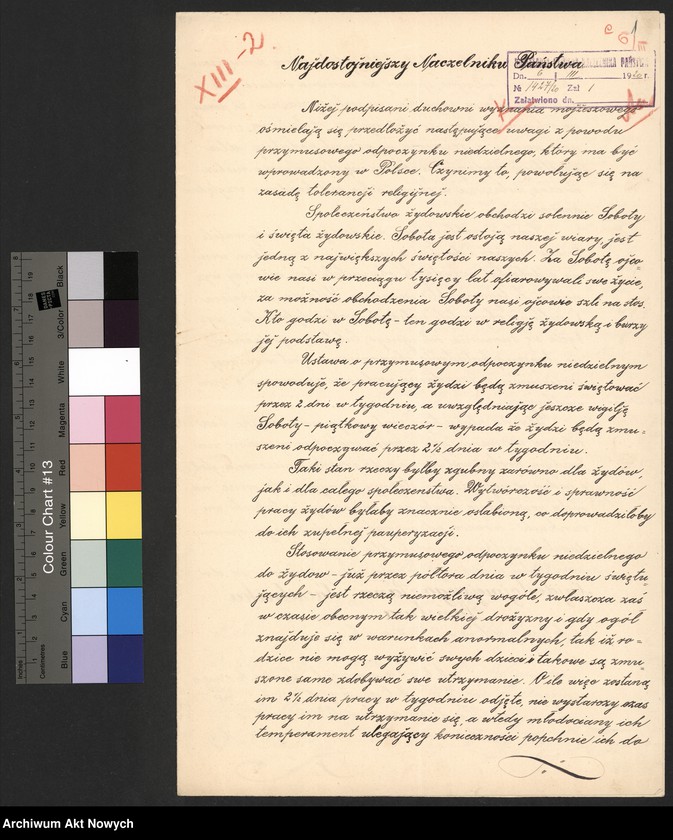 XIII-2
Najdostojniejszy Naczelniku Państwa
Dn. 6 III 19 r.
№ Zał 1
Załatwiono dn.
Niżej podpisani duchowni wyznania mojżeszowego
ośmielają się przedłożyć następujące uwagi z powodu
przymusowego odpoczynku niedzielnego, który ma być
wprowadzony w Polsce. Czynimy to, powołując się na
zasadę tolerancji religijnej.
Społeczeństwo żydowskie obchodzi solennie Soboty
i święta żydowskie. Sobota jest ostoją naszej wiary, jest
jedną z największych świętości naszych. Za Sobotę ojco=
wie nasi w przeciągu tysięcy lat ofiarowywali swe życie,
za możność obchodzenia Soboty nasi ojcowie szli na stos.
Kto godzi w Sobotę - ten godzi w religję żydowską i burzy
jéj podstawę.
Ustawa o przymusowym odpoczynku niedzielnym
spowoduje, że pracujący żydzi będą zmuszeni świętować
przez 2 dni w tygodniu, a uwzględniając jeszcze wigilję
Soboty - piątkowy wieczór - wypada że żydzi będą zmu=
szeni odpoczywać przez 2½ dnia w tygodniu.
Taki stan rzeczy byłby zgubny zarówno dla żydów,
jak i dla całego społeczeństwa. Wytwórczość i sprawność
pracy żydów byłaby znacznie osłabioną, co doprowadziłoby
do ich zupełnej pauperyzacji.
Stosowanie przymusowego odpoczynku niedzielnego
do żydow - już przez półtora dnia w tygodniu świętu
jących - jest rzeczą niemożliwą wogóle, zwłaszcza zaś
w czasie obecnym tak wielkiej drożyzny i gdy ogół
znajduje się w warunkach anormalnych, tak iż ro=
dzice nie mogą wyżywić swych dzieci i takowe są zmu=
szone same zdobywać swe utrzymanie. O ile więc zostaną
im 2½ dnia pracy w tygodniu odjęte, nie wystarczy czas
pracy im na utrzymanie się, a wtedy młodociany ich
temperament ulegający konieczności popchnie ich do
Colour Chart #13
Black
3/Color
White
Magenta
Red
Yellow
Green
Cyan
Blue
Inches
Centimetres
Archiwum Akt Nowych